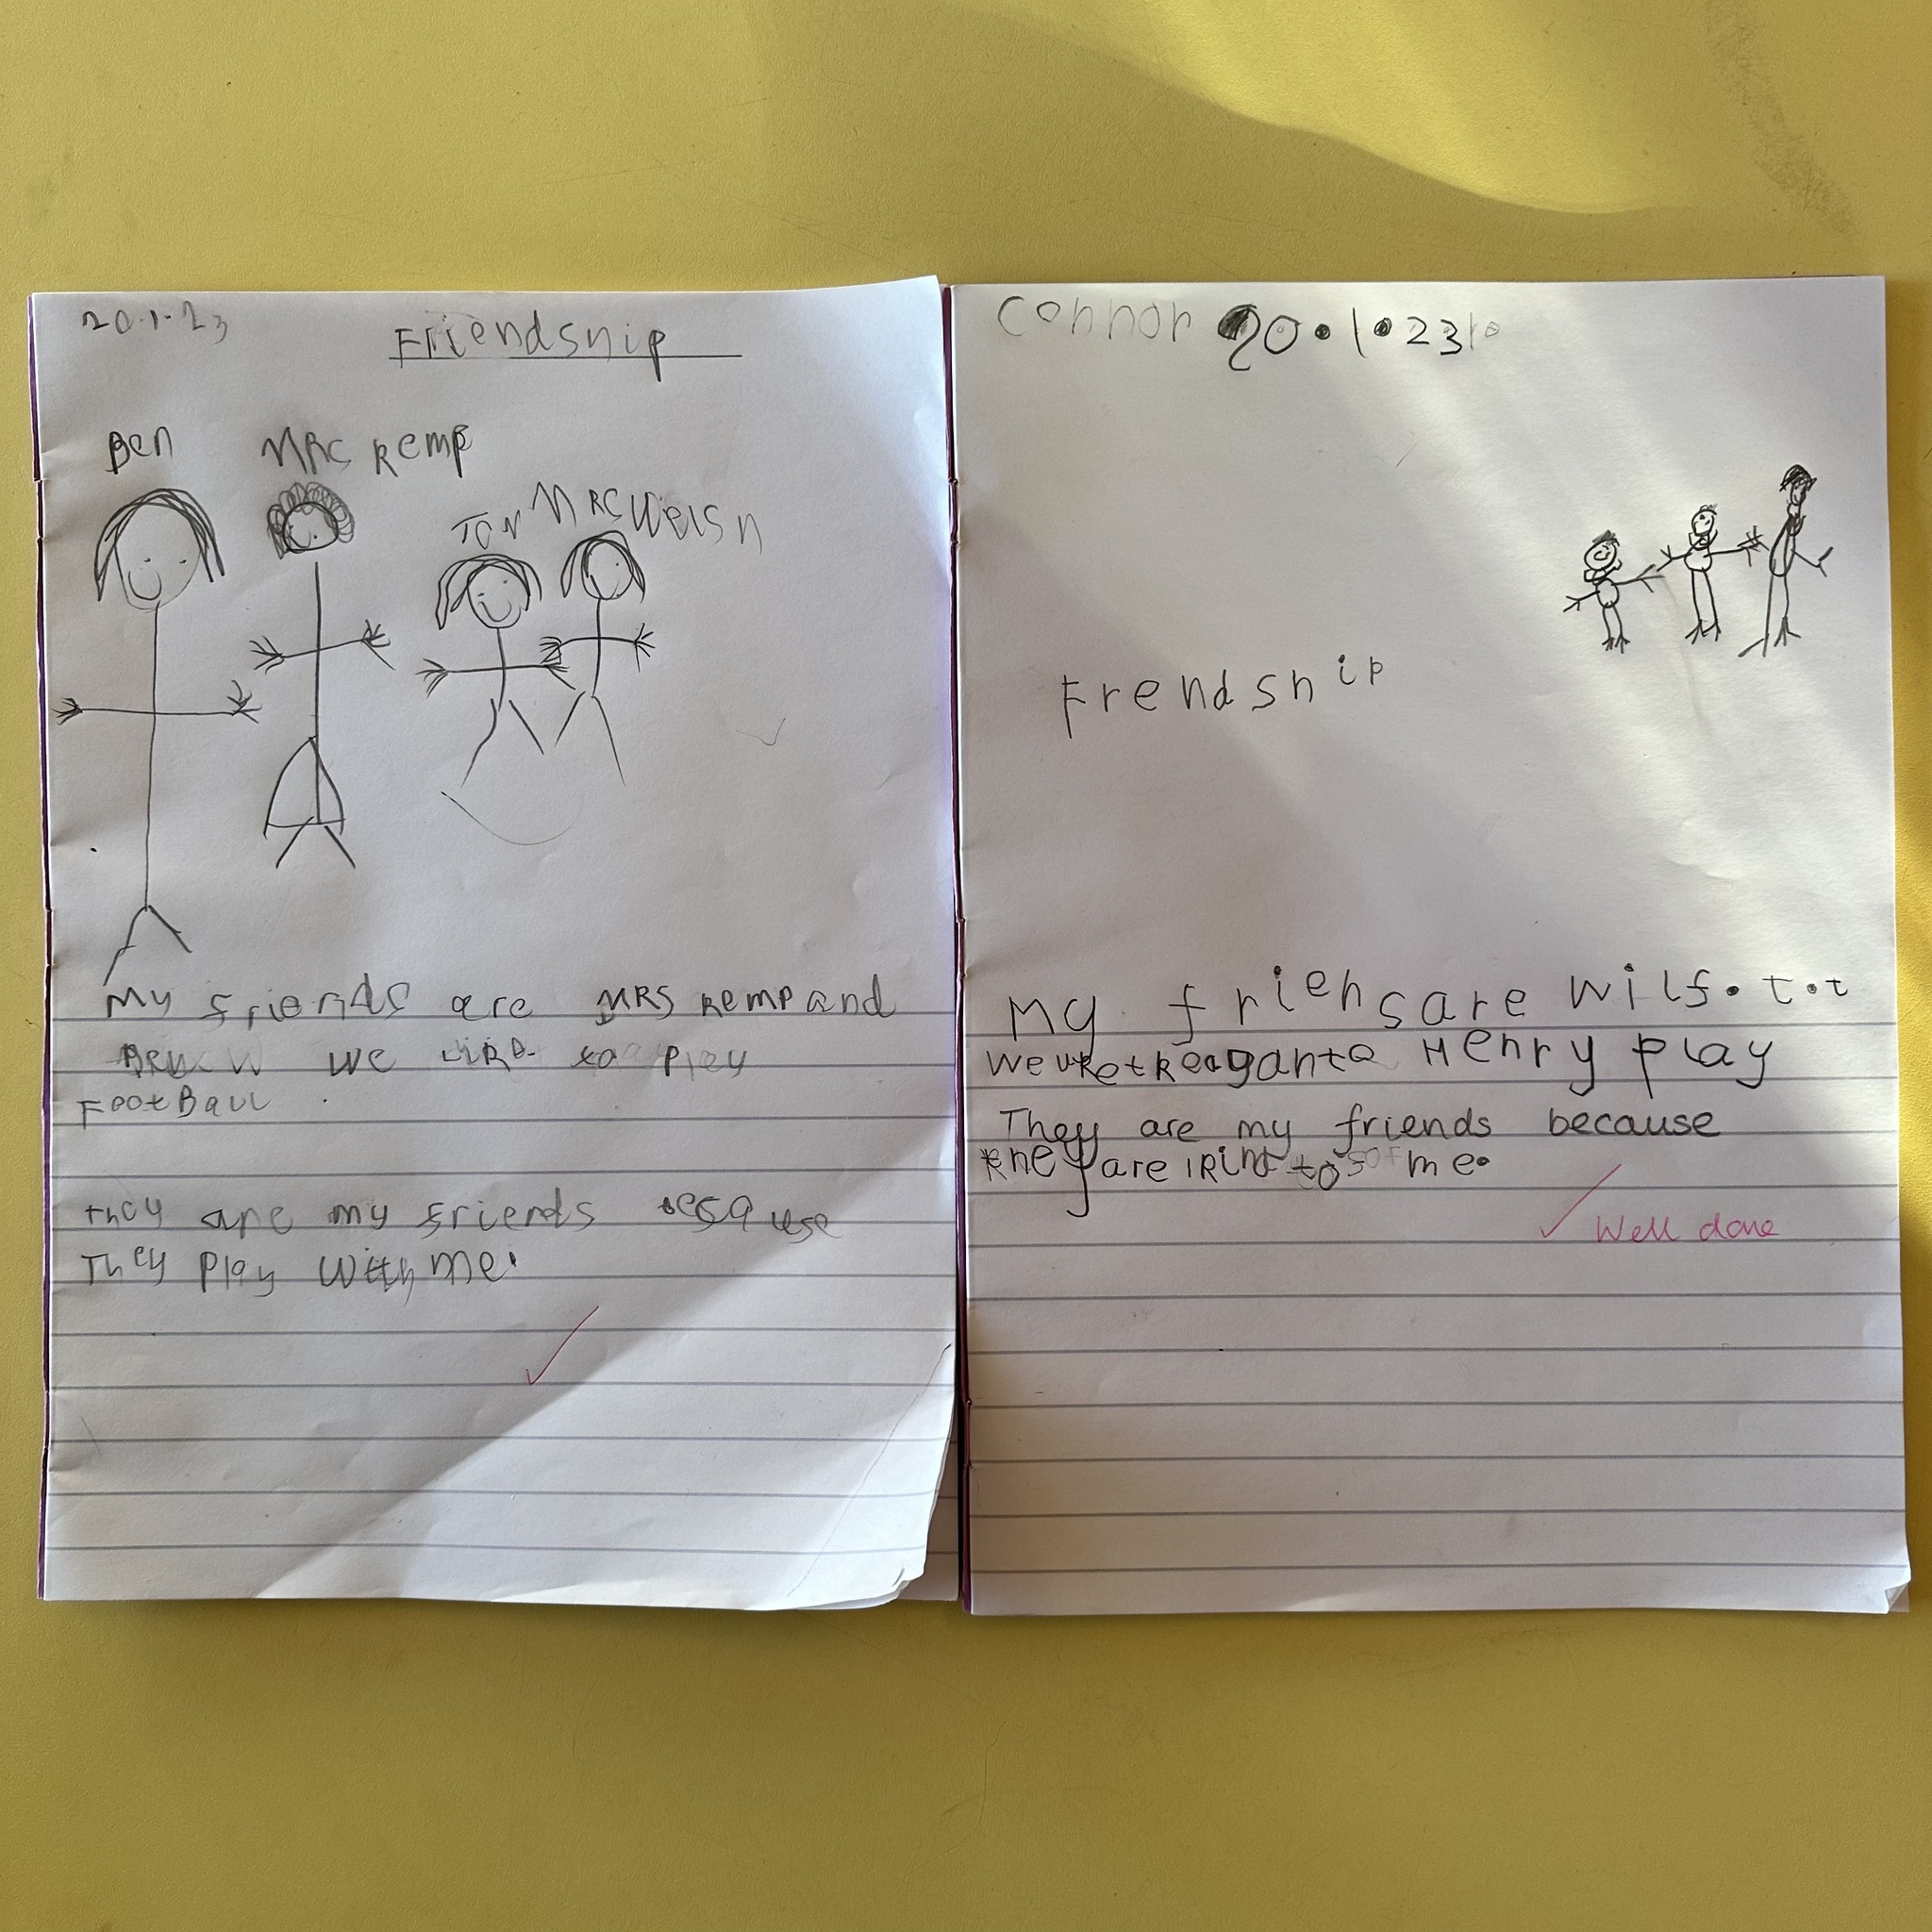 20.1.23
Friendship
Ben MRC Kemp
Tom MRC Welsh
My friends are MRS Kemp and
we like to play
FootBall
they are my friends
They play with me.
Connor 20.1.23
Frendship
My friens are Wilf.
We Henry play
They are my friends because
they are kind to me.
Well done